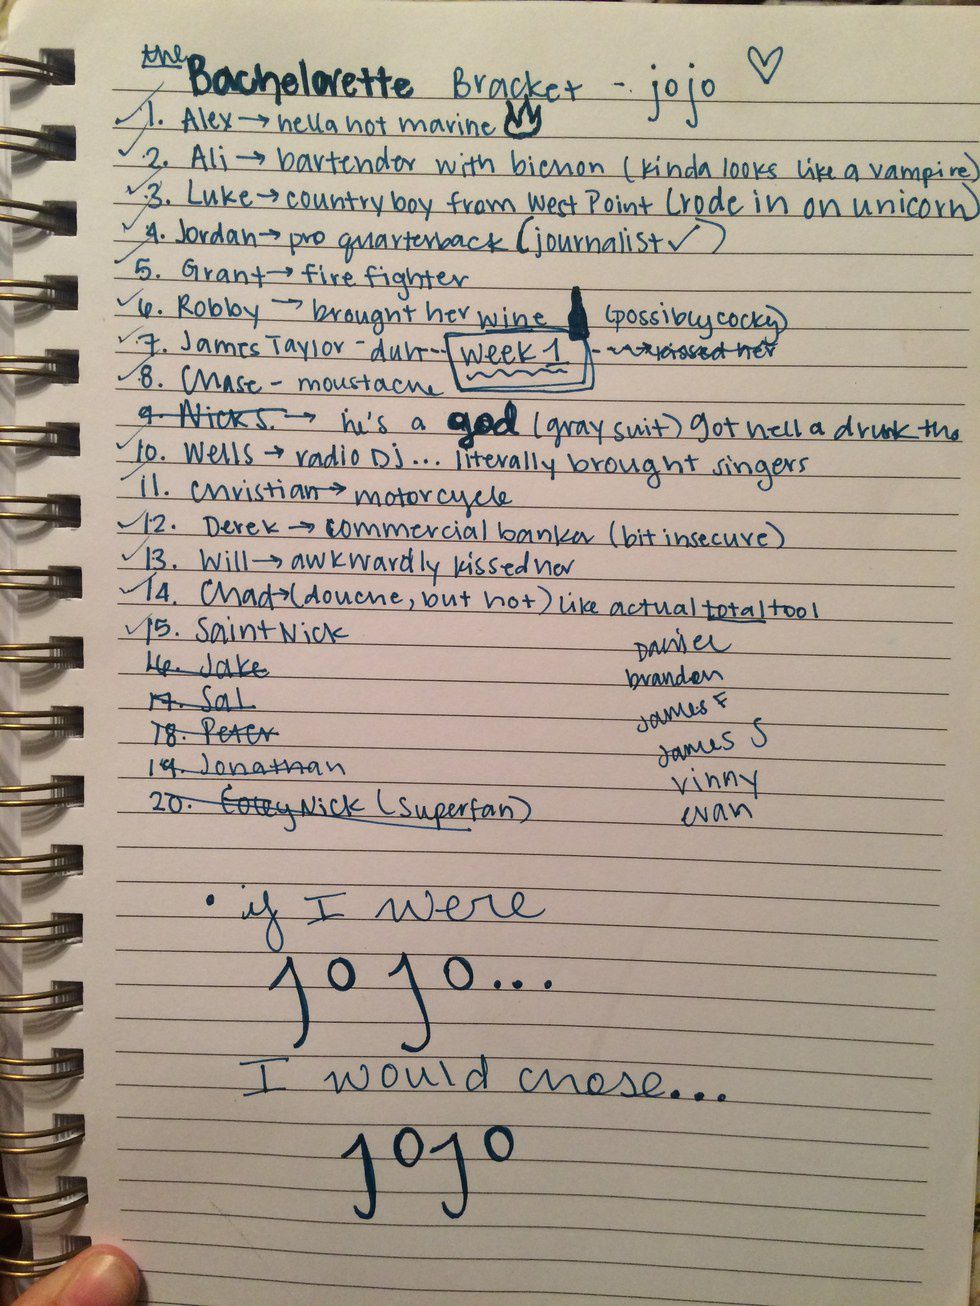 the Bachelorette Bracket - jojo
1. Alex → hella hot marine
2. Ali → bartender with bichon (kinda looks like a vampire)
3. Luke → country boy from West Point (rode in on unicorn)
4. Jordan → pro quarterback (journalist ✓)
5. Grant → fire fighter
6. Robby → brought her wine (possibly cocky)
7. James Taylor - duh -- week 1 -- kissed her
8. Chase - moustache
9. Nick S. → he's a god (gray suit) got hella drunk tho
10. Wells → radio DJ... literally brought singers
11. Christian → motorcycle
12. Derek → commercial banka (bit insecure)
13. Will → awkwardly kissed her
14. Chad → (douche, but hot) like actual total tool
15. Saint Nick
16. Jake
17. Sal
18. Peter
19. Jonathan
20. Coley Nick (superfan)
Daniel
brandon
James F
James S
vinny
evan
• if I were
jojo...
I would chose...
jojo